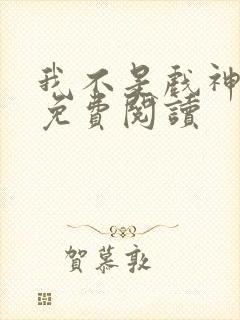 我不是戲神
免費閱讀
賀慕敦